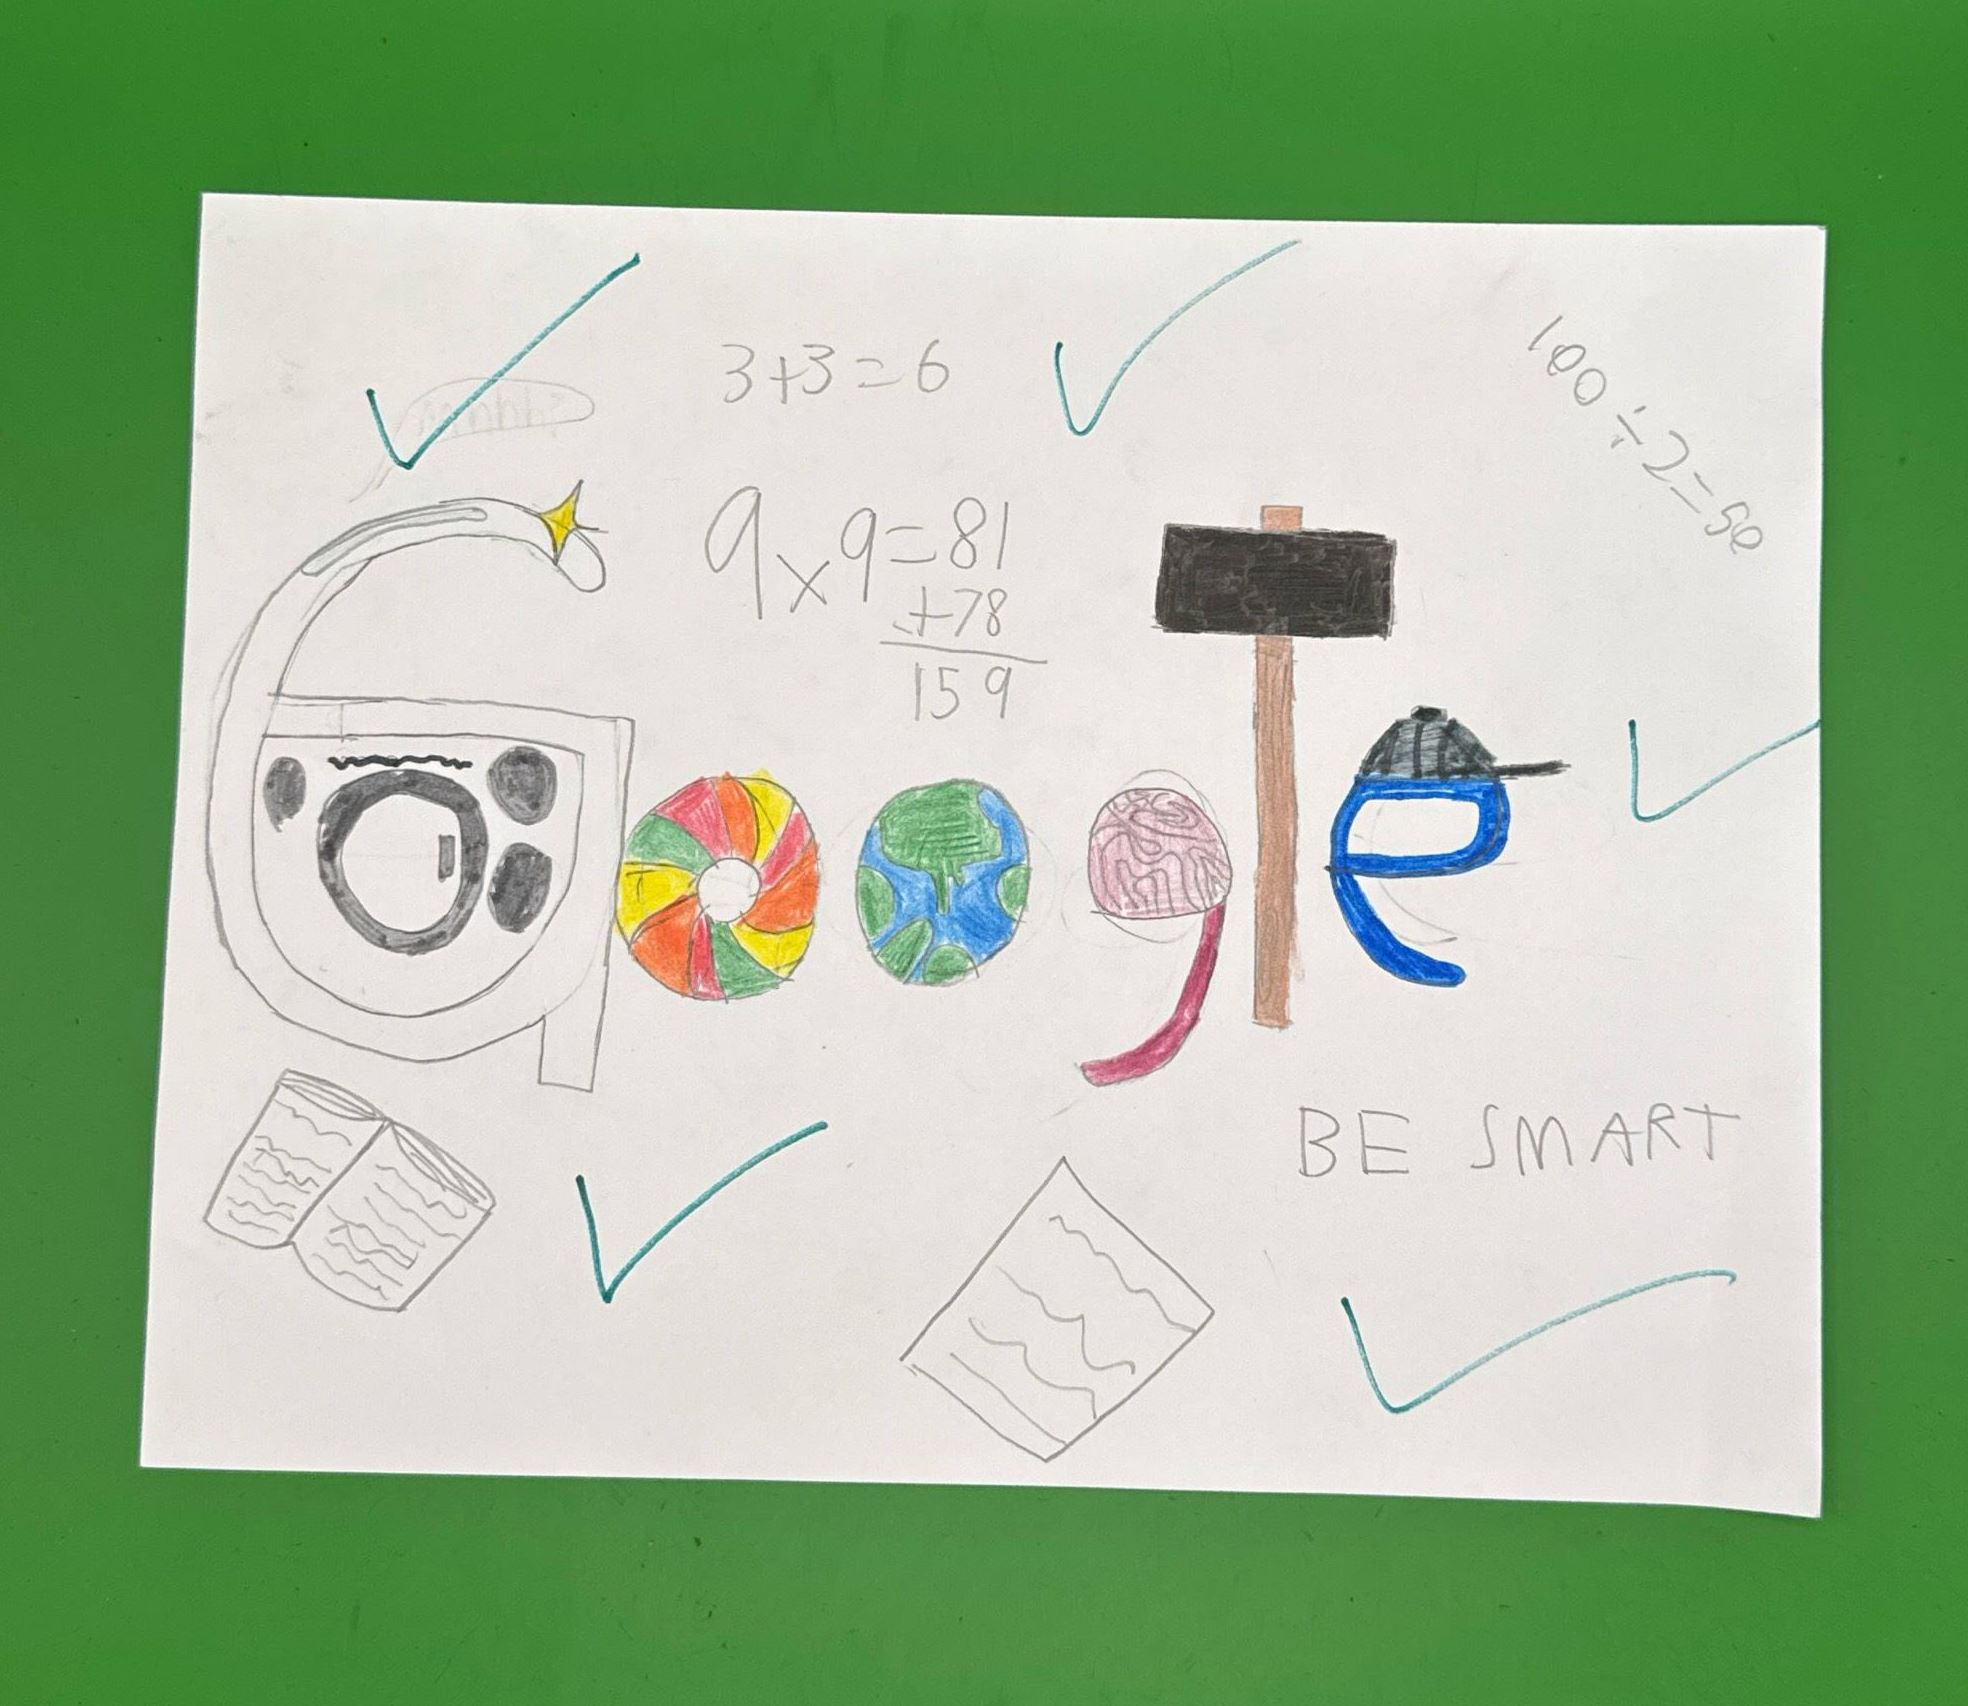 3+3=6
100÷2=50
9×9=81
+78
159
Google
BE SMART